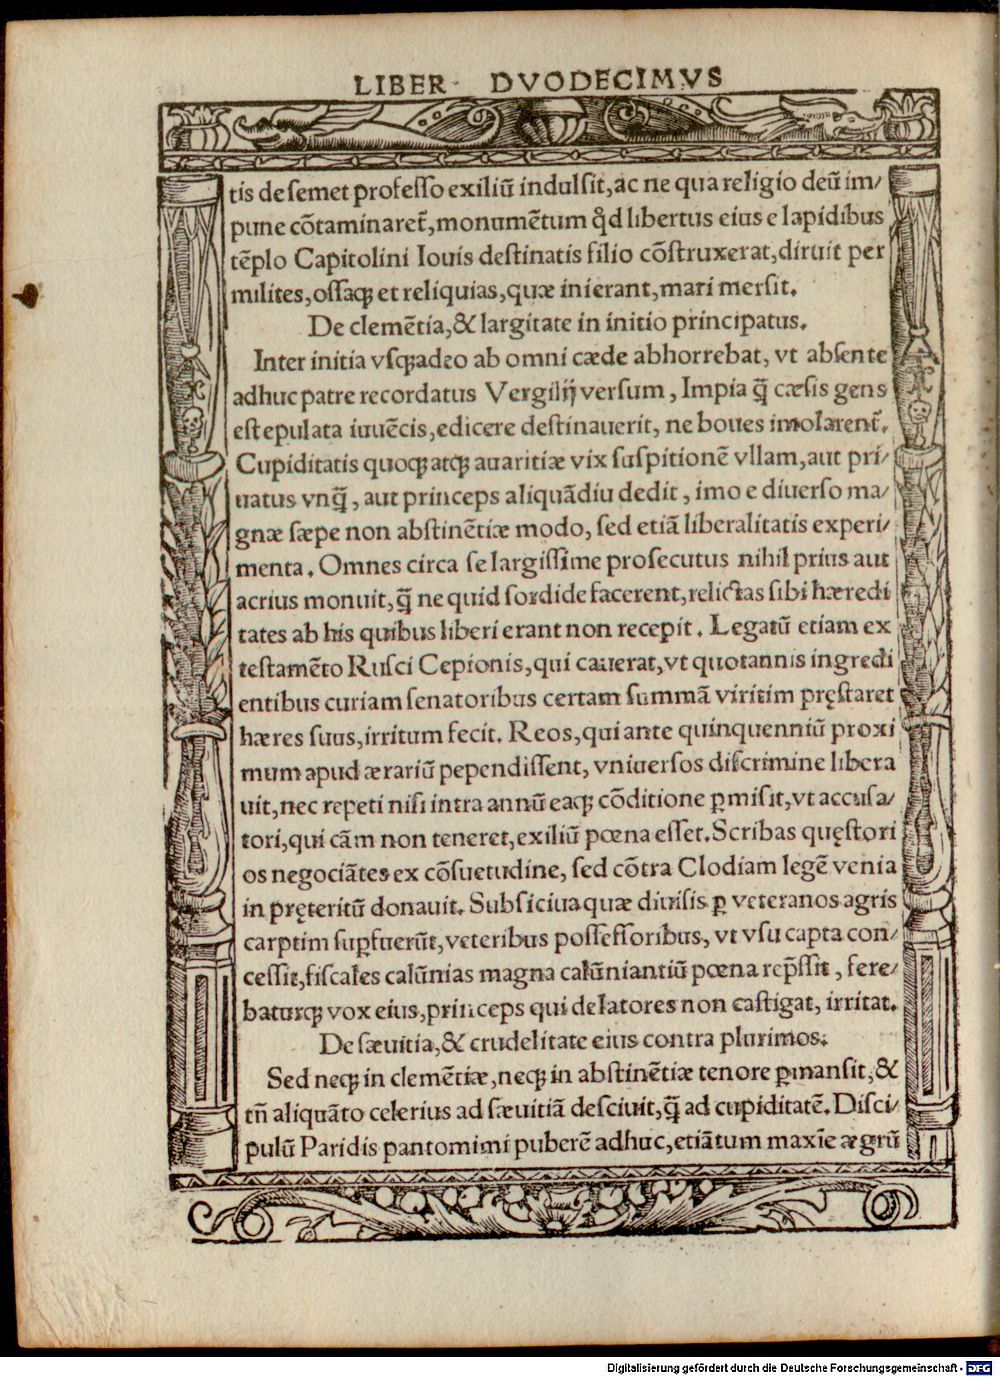 LIBER DVODECIMVS
tis de semet professo exiliū indulsit, ac ne qua religio deū im/
pune cōtaminaret̃, monumētum q̃d libertus eius e lapidibus
tēplo Capitolini Iouis destinatis filio cōstruxerat, diruit per
milites, ossaqꝫ et reliquias, quæ inierant, mari mersit.
De clemētia, & largitate in initio principatus.
Inter initia vsqꝫadeo ab omni cæde abhorrebat, vt absente
adhuc patre recordatus Vergilij versum, Impia q̃̃ cæsis gens
est epulata iuuēcis, edicere destinauerit, ne boues imolarent̃.
Cupiditatis quoqꝫ atqꝫ auaritiæ vix suspitionē vllam, aut pri/
uatus vnq̃̃, aut princeps aliquādiu dedit, imo e diuerso ma/
gnæ sæpe non abstinētiæ modo, sed etiā liberalitatis experi/
menta. Omnes circa se largissime prosecutus nihil prius aut
acrius monuit, q̃̃ ne quid sordide facerent, relictas sibi hæredi
tates ab his quibus liberi erant non recepit. Legatū etiam ex
testamēto Rusci Cepionis, qui cauerat, vt quotannis ingredi
entibus curiam senatoribus certam summā viritim pręstaret
hæres suus, irritum fecit. Reos, qui ante quinquenniū proxi
mum apud ærariū pependissent, vniuersos discrimine libera
uit, nec repeti nisi intra annū eaqꝫ cōditione ꝑmisit, vt accusa/
tori, qui cām non teneret, exiliū pœna esset. Scribas quęstori
os negociātes ex cōsuetudine, sed cōtra Clodiam legē venia
in pręteritū donauit. Subsiciua quæ diuisis ꝑ veteranos agris
carptim suꝑfuerūt, veteribus possessoribus, vt vsu capta con/
cessit, fiscales calūnias magna calūniantiū pœna rep̃ssit, fere/
baturqꝫ vox eius, princeps qui delatores non castigat, irritat.
De sæuitia, & crudelitate eius contra plurimos.
Sed neqꝫ in clemētiæ, neqꝫ in abstinētiæ tenore ꝑmansit, &
tñ aliquāto celerius ad sæuitiā desciuit, q̃̃ ad cupiditatē. Disci/
pulū Paridis pantomimi puberē adhuc, etiātum maxīe ægrū
Digitalisierung gefördert durch die Deutsche Forschungsgemeinschaft - DFG